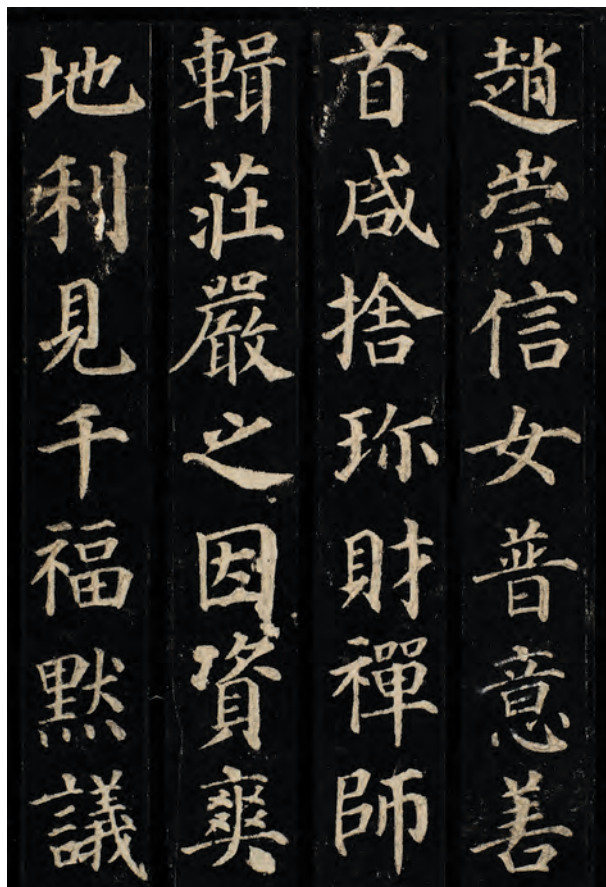 趙崇信女普意善
首咸捨珎財禪師
輯莊嚴之因資爽
地利見千福默議